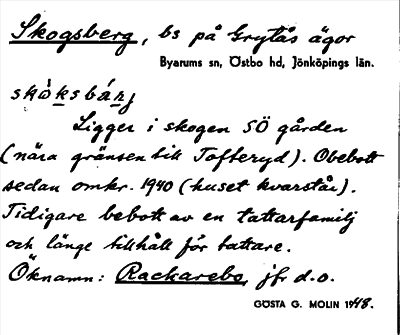 Skogsberg, bs på Grytås ägor
Byarums sn, Östbo hd, Jönköpings län.
skòksbárj
Ligger i skogen SÖ gården
(nära gränsen till Tofteryd). Obebott
sedan omkr. 1940 (huset kvarstår).
Tidigare bebott av en tattarfamilj
och länge tillhåll för tattare.
Öknamn: Rackarebo, jfr d.o.
GÖSTA G. MOLIN 1948.